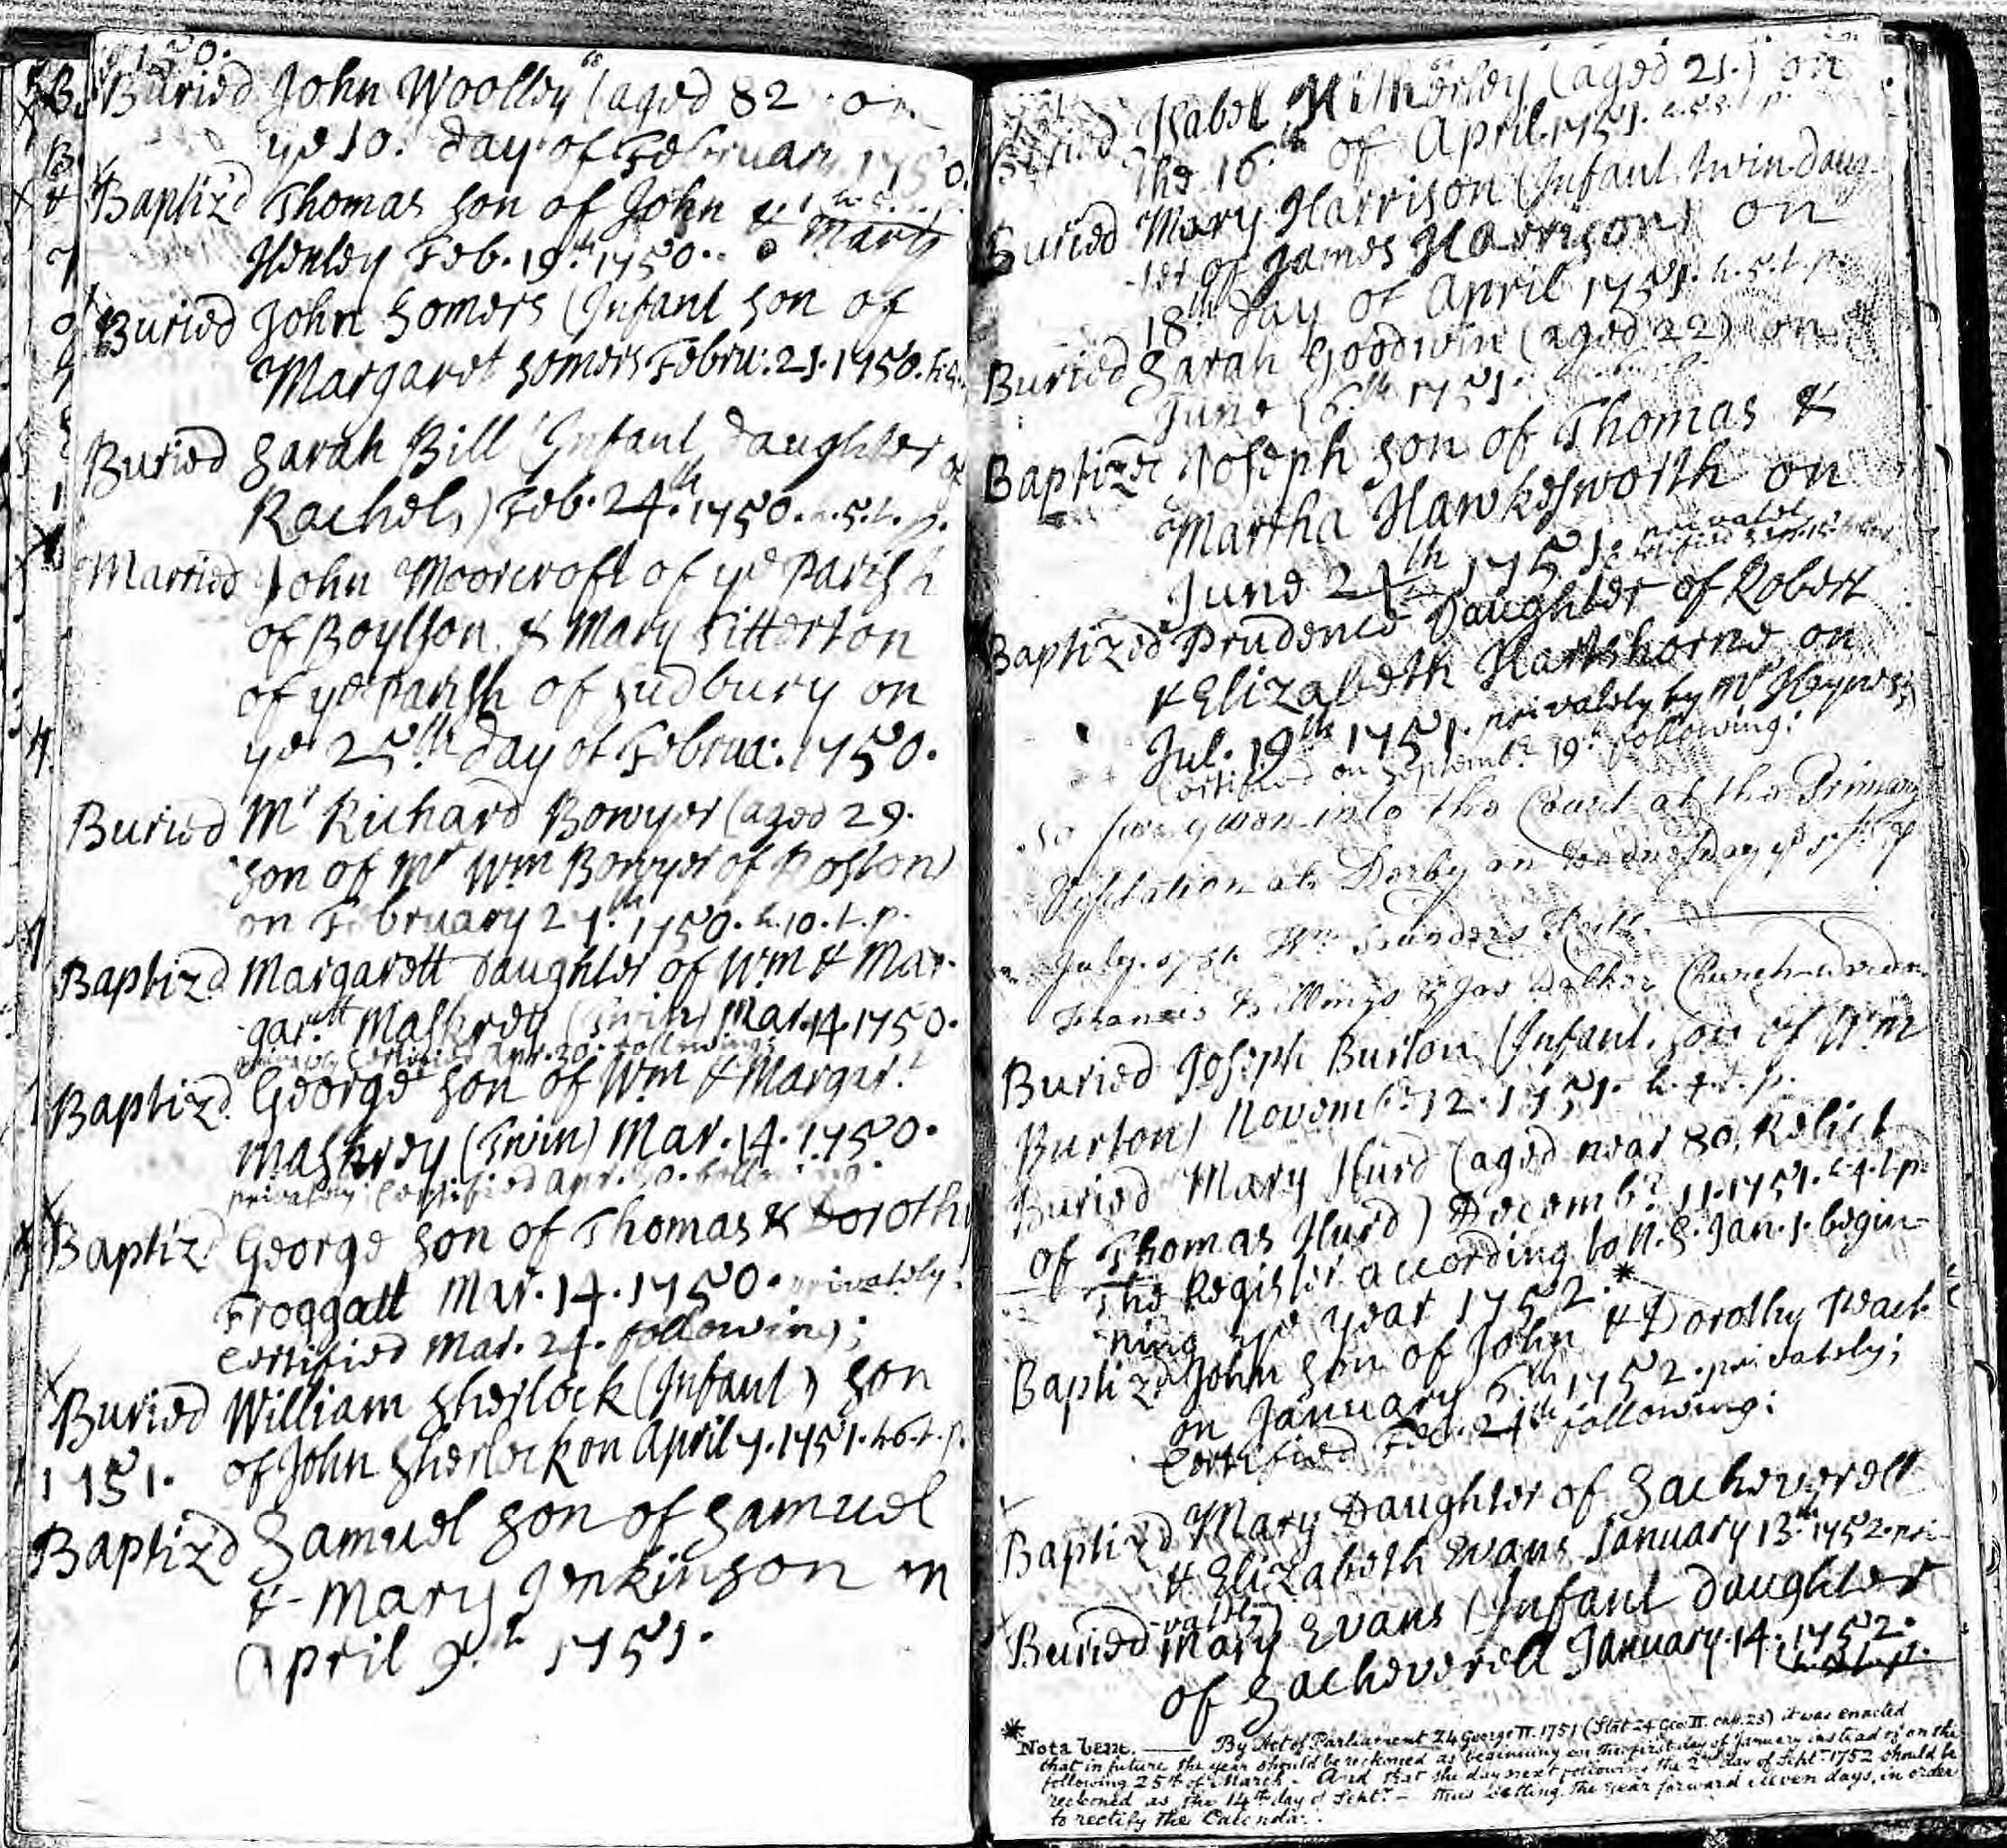 1750.
Buried John Woolley (aged 82 on
ye 10. day of February 1750.
Baptiz'd Thomas son of John & Mary
Henley Feb. 19th 1750..
Buried John Somers (Infant son of
Margaret Somers Febru: 21. 1750.
Buried Sarah Bill (Infant daughter of
Rachel,) Feb. 24th 1750. h. 5. t. p.
Married John Moorcroft of ye Parish
of Boylson & Mary Sitterton
of ye Parish of Sudbury on
ye 25th day of Februa: 1750.
Buried Mr Richard Bowyer (aged 29.
son of Mr Wm Bowyer of Roston)
on February 27th 1750. h. 10. t. p.
Baptiz'd Margarett daughter of Wm & Mar-
gartt Maskrey (Twin) Mar. 14. 1750.
Certified Apr. 30. following;
Baptiz'd George son of Wm & Margar:t
Maskrey (Twin) Mar. 14. 1750.
privately Certified Apr. 30.
Baptiz'd George son of Thomas & Dorothy
Froggatt Mar. 14. 1750. privately:
Certified Mar. 24. following;
Buried William Sherlock (Infant) son
1751. of John Sherlock on April 7. 1751. h. 6. t. p.
Baptiz'd Samuel son of Samuel
& Mary Jenkinson on
April 9th 1751.
Buried Isabel (aged 21.) on
The 16th of April. 1751.
Buried Mary Harrison (Infant, twin daug-
-ter of James Harrison) on
18th day of April 1751. h. 5. t. p.
Buried Sarah Goodwin (aged 22) on
June 16th 1751.
Baptized Joseph son of Thomas &
Martha Hawkesworth on
June 24th 1751.
Baptized Prudence Daughter of Robert
& Elizabeth Hartshorne on
Jul. 19th 1751. privately by Mr Haynes;
Certified on Septembr 19th following:
So far given into the Court at the Primary
Visitation at Derby on Wednesday ye
July. 1751. Wm Saunders
Francis Billings & Jos Walker Churchwardens
Buried Joseph Burton (Infant, son of Wm
Burton) Novembr 12. 1751. h. 4. t. p.
Buried Mary Hurd (aged near 80, Relict
of Thomas Hurd) Decembr 11. 1751. h. 4. t. p.
The Register according to N. S. Jan. 1. begin-
ning ye year 1752.*
Baptiz'd John son of John & Dorothy Peach
on January 6th 1752. privately;
Certified Feb. 24th following:
Baptiz'd Mary Daughter of Sacheverell
& Elizabeth Evans January 13th 1752. pri-
vately
Buried Mary Evans (Infant Daughter
of Sacheverell January. 14. 1752.
* Nota bene. — By Act of Parliament 24 George II. 1751 (Stat 24 Geo. II. cap. 23) it was enacted
that in future the year should be reckoned as beginning on the first day of January instead of on the
following 25th of March - And that the day next following the 2nd day of Septr 1752 should be
reckoned as the 14th day of Septr - thus setting the year forward eleven days, in order
to rectify the Calendar.